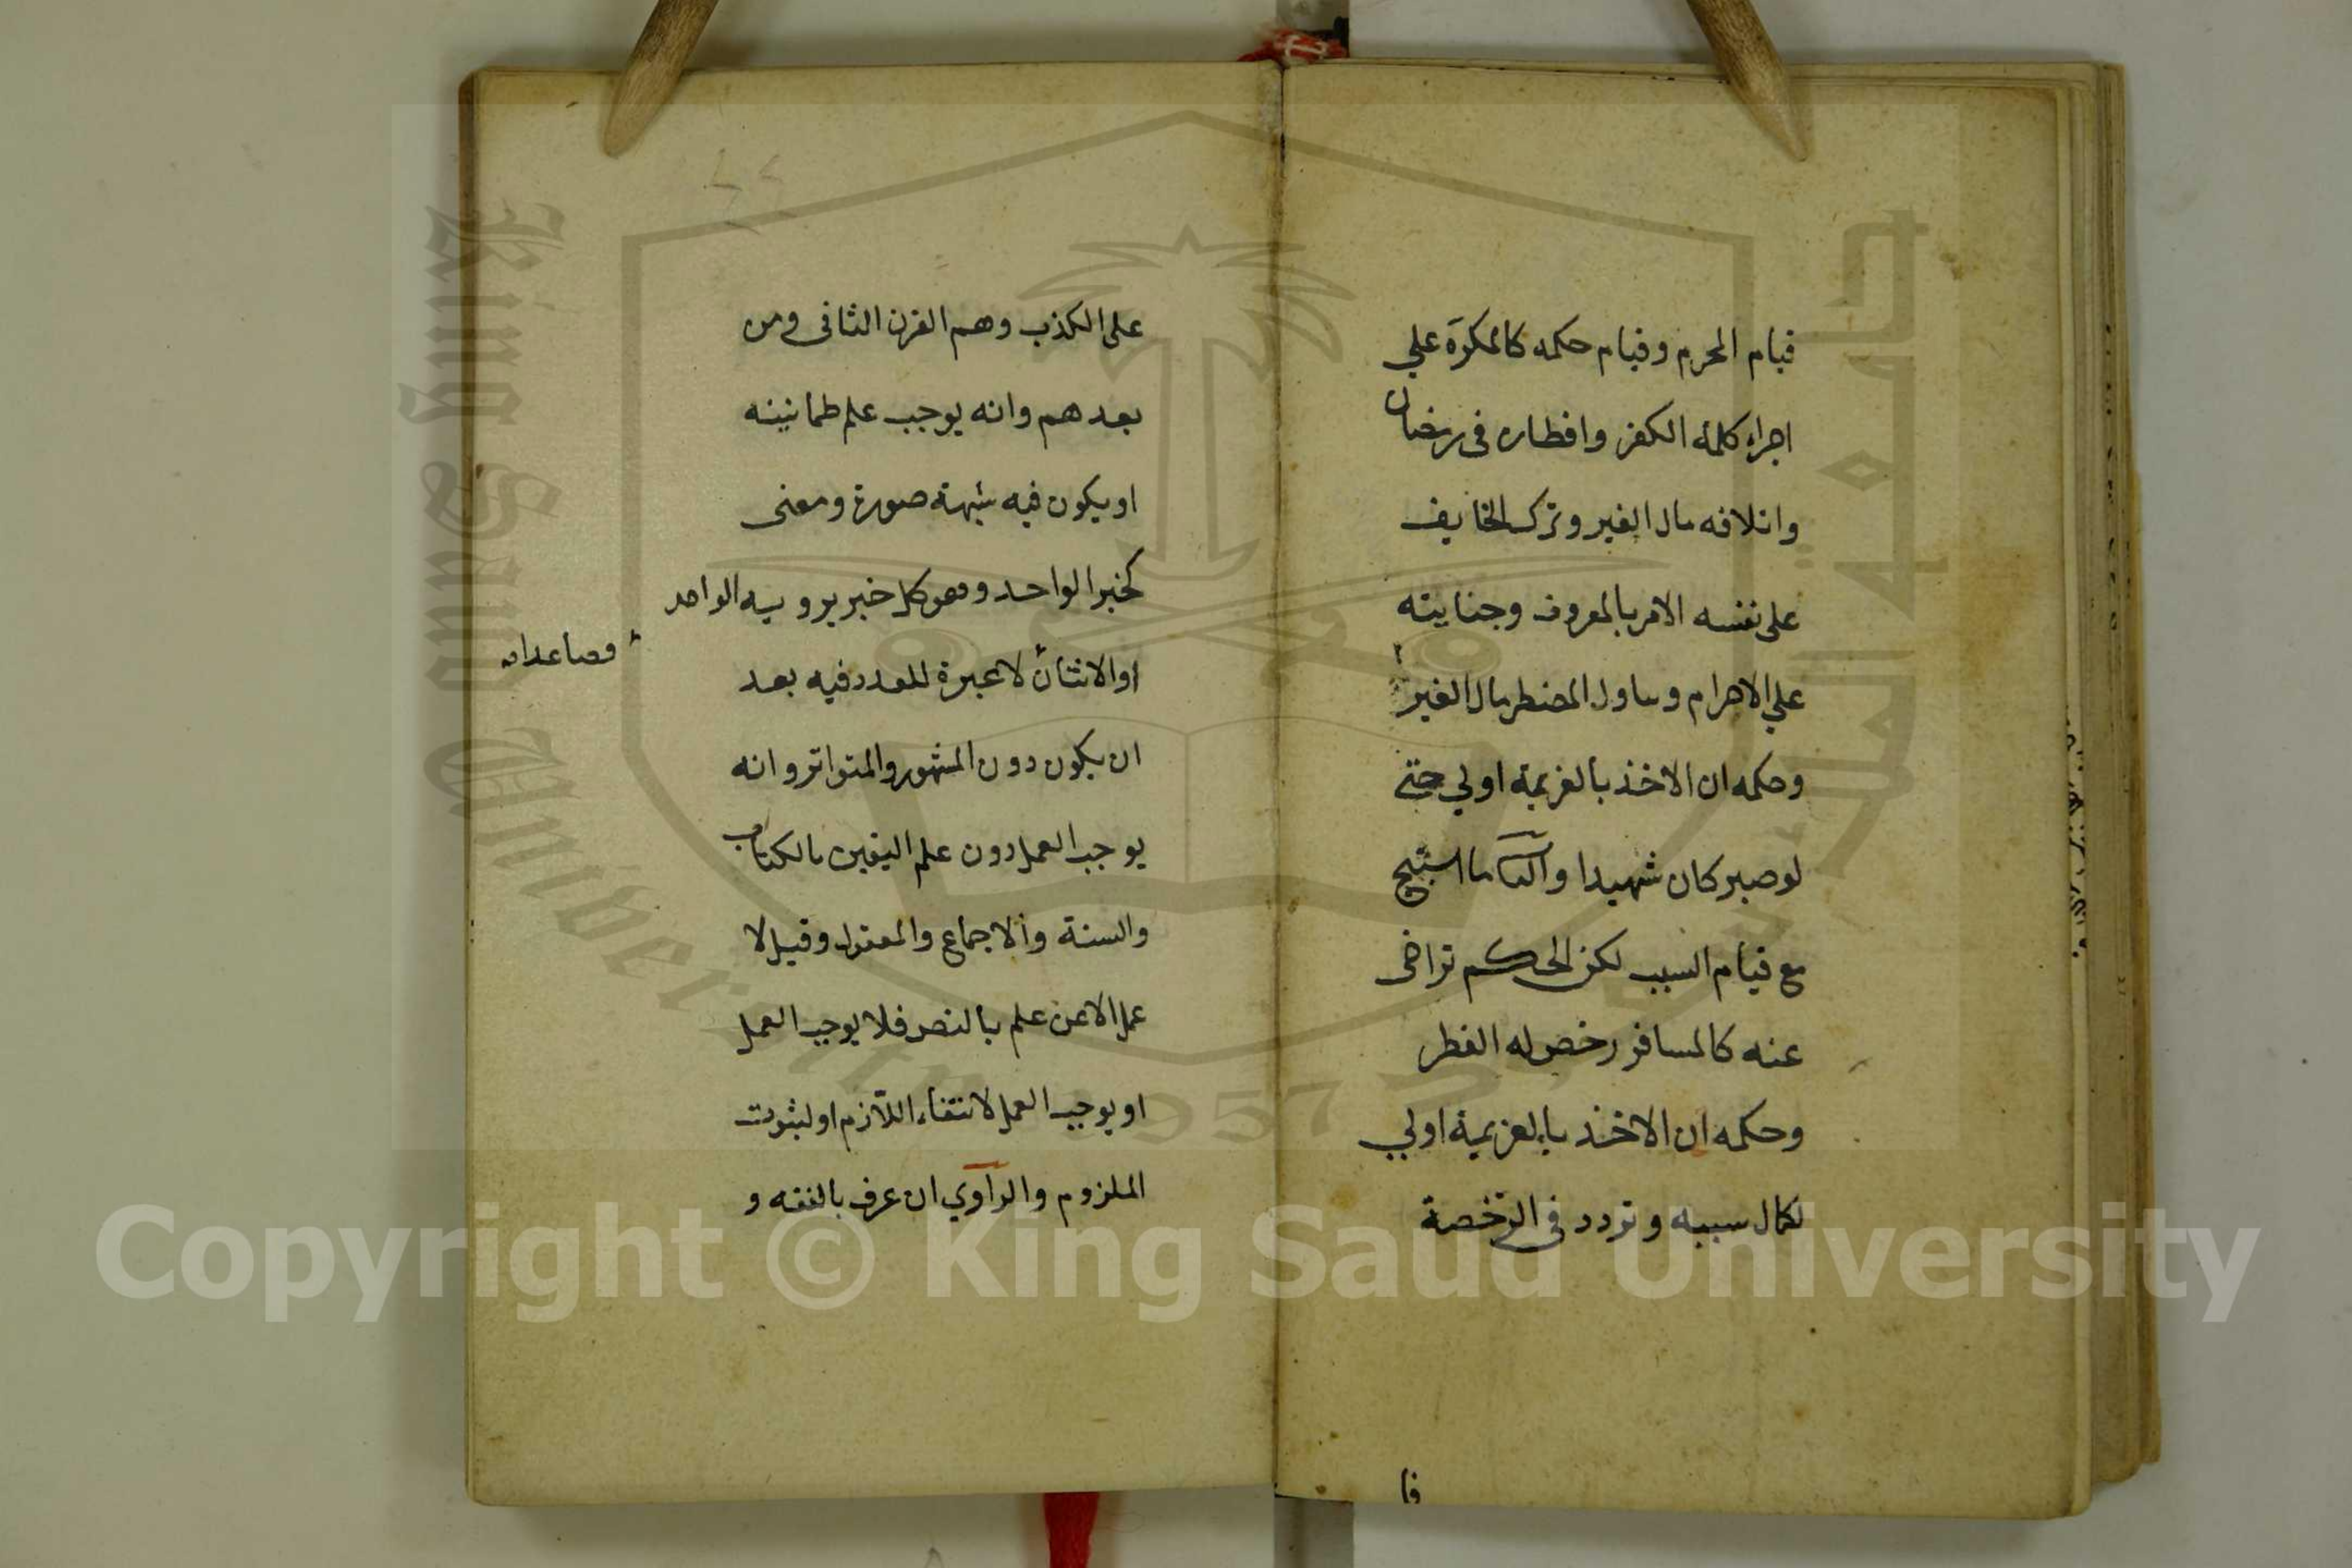 قيام المحرم وقيام حكمه كالمكره علي
اجراء كلمة الكفر وافطاره في رمضان
واتلافه مال الغير وترك الخايف
على نفسه الامر بالمعروف وجنايته
علي الاحرام وتناول المضطر مال الغير
وحكمه ان الاخذ بالعزيمة اولي حتى
لو صبر كان شهيدا والثاني ما استبيح
مع قيام السبب لكن الحكم تراخى
عنه كالمسافر رخص له الفطر
وحكمه ان الاخذ بالعزيمة اولي
لكمال سببه وتردد في الرخصة
فا
على الكذب وهم القرن الثاني ومن
بعدهم وانه يوجب علم طمانينه
او يكون فيه شبهة صورة ومعنى
كخبر الواحد وهو كل خبر يرويه الواحد
او الاثنان لا عبرة للعدد فيه بعد
فصاعدا
ان يكون دون المشهور والمتواتر وانه
يوجب العمل دون علم اليقين بالكتاب
والسنة والاجماع والمعقول وقيل لا
عمل الا عن علم بالنص فلا يوجب العمل
او يوجب العمل لانتفاء اللازم او لثبوت
الملزوم والراوي ان عرف بالفقه و
King Saud University
1957
Copyright © King Saud University